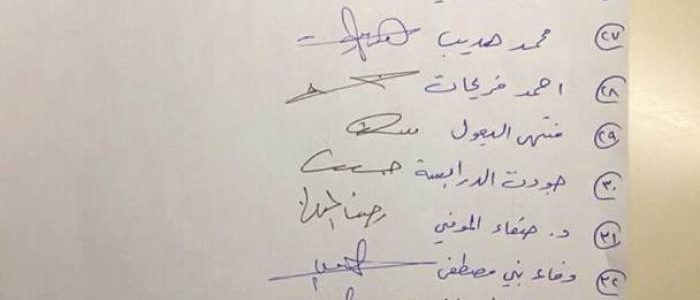 ٢٧ محمد هديب
٢٨ احمد فريحات
٢٩ منتهى البعول
٣٠ جودت الدرابسة
٣١ د. صفاء المومني
٣٢ وفاء بني مصطفى